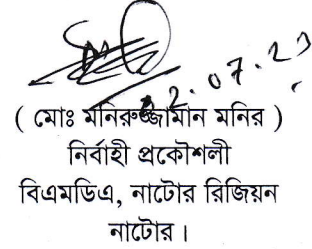 02.07.23
( মোঃ মনিরুজ্জামান মনির )
নির্বাহী প্রকৌশলী
বিএমডিএ, নাটোর রিজিয়ন
নাটোর।